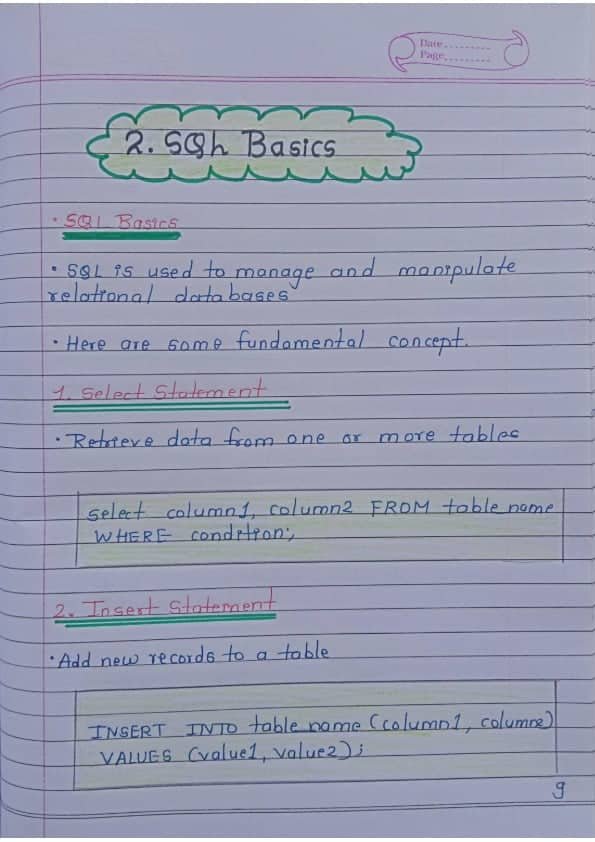 Date.........
Page.........
2. SQL Basics
• SQL Basics
• SQL is used to manage and manipulate
relational databases
• Here are some fundamental concept.
1. Select Statement
• Retrieve data from one or more tables
select column1, column2 FROM table name
WHERE condition;
2. Insert Statement
• Add new records to a table
INSERT INTO table name (column1, column2)
VALUES (value1, value2);
9